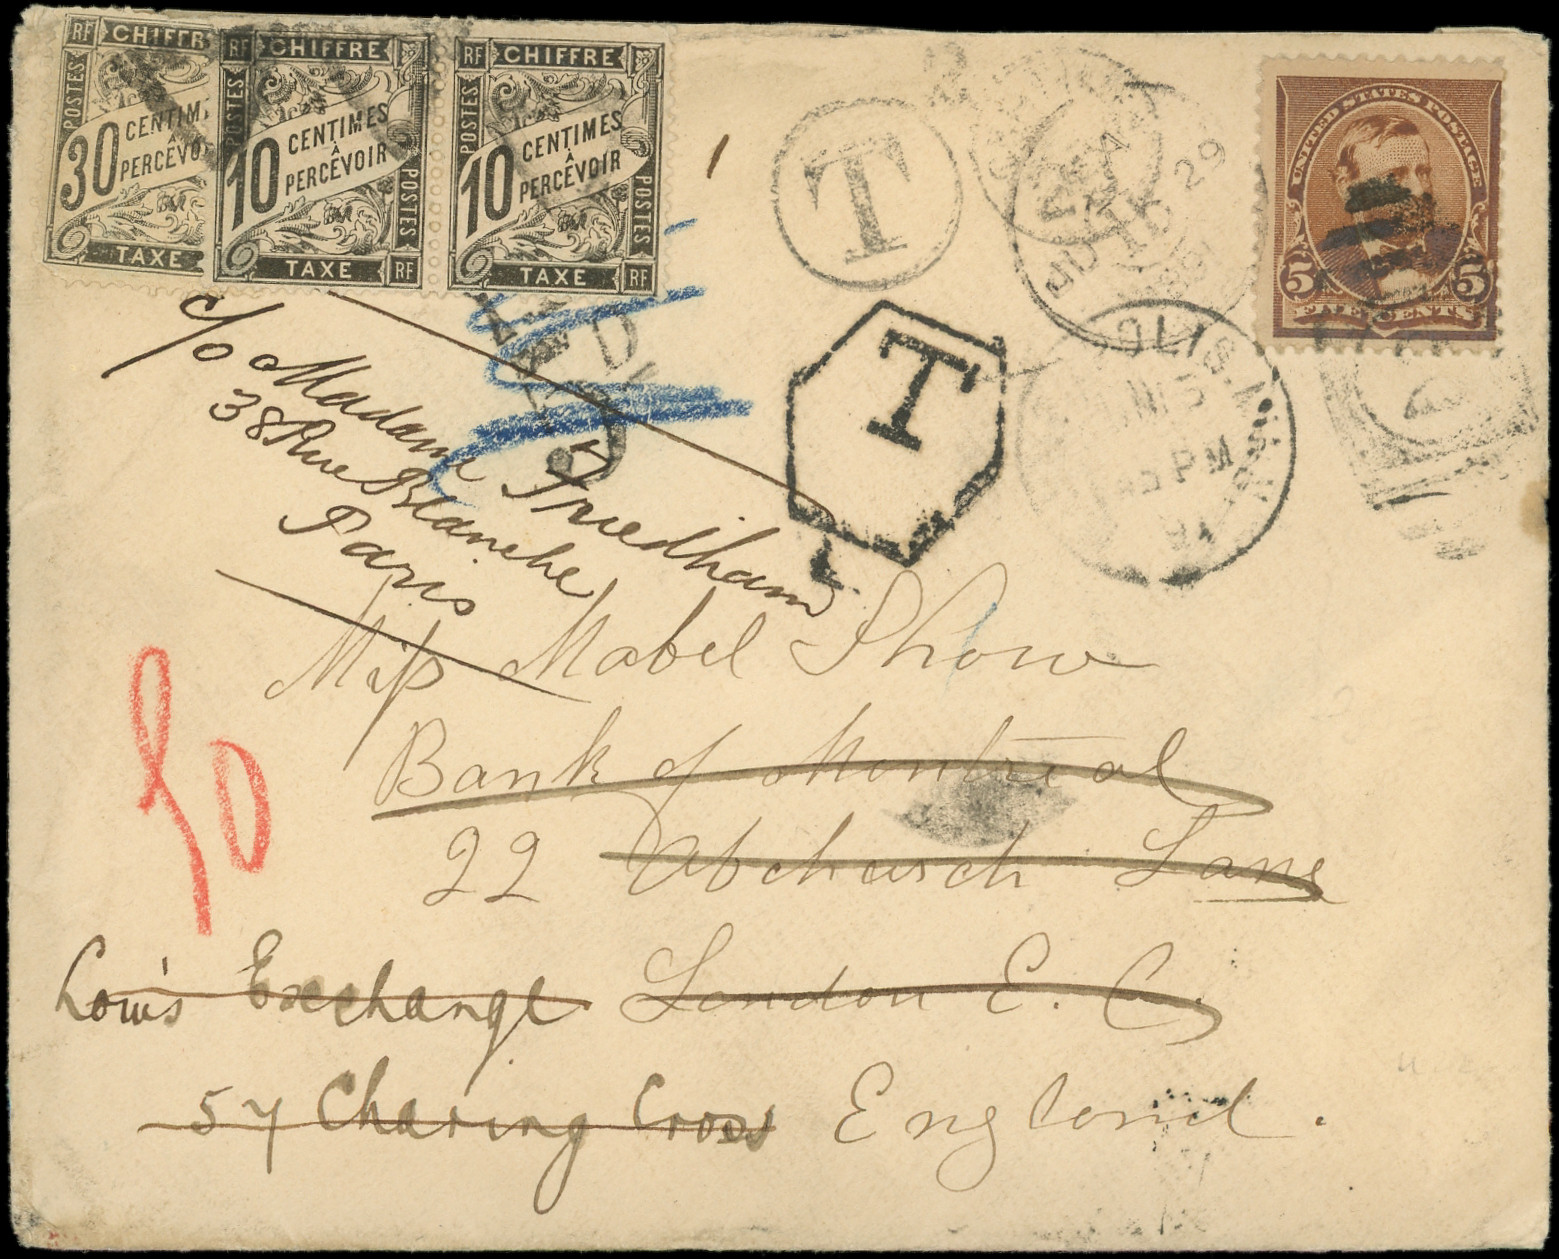 RF CHIFFR
POSTES
30 CENTIM
À
PERCEVO
TAXE
RF CHIFFRE
POSTES
10 CENTIMES
À
PERCEVOIR
POSTES
TAXE RF
RF CHIFFRE
POSTES
10 CENTIMES
À
PERCEVOIR
POSTES
TAXE RF
T
29
UNITED STATES POSTAGE
5 5
FIVE CENTS
T
OLIS.
PM
91
c/o Madame Friedham
38 Rue Blanche
Paris
Miss Mabel Show
Bank of Montreal
22 Abchurch Lane
50
Louis Exchange London E. C.
57 Charing Cross England.